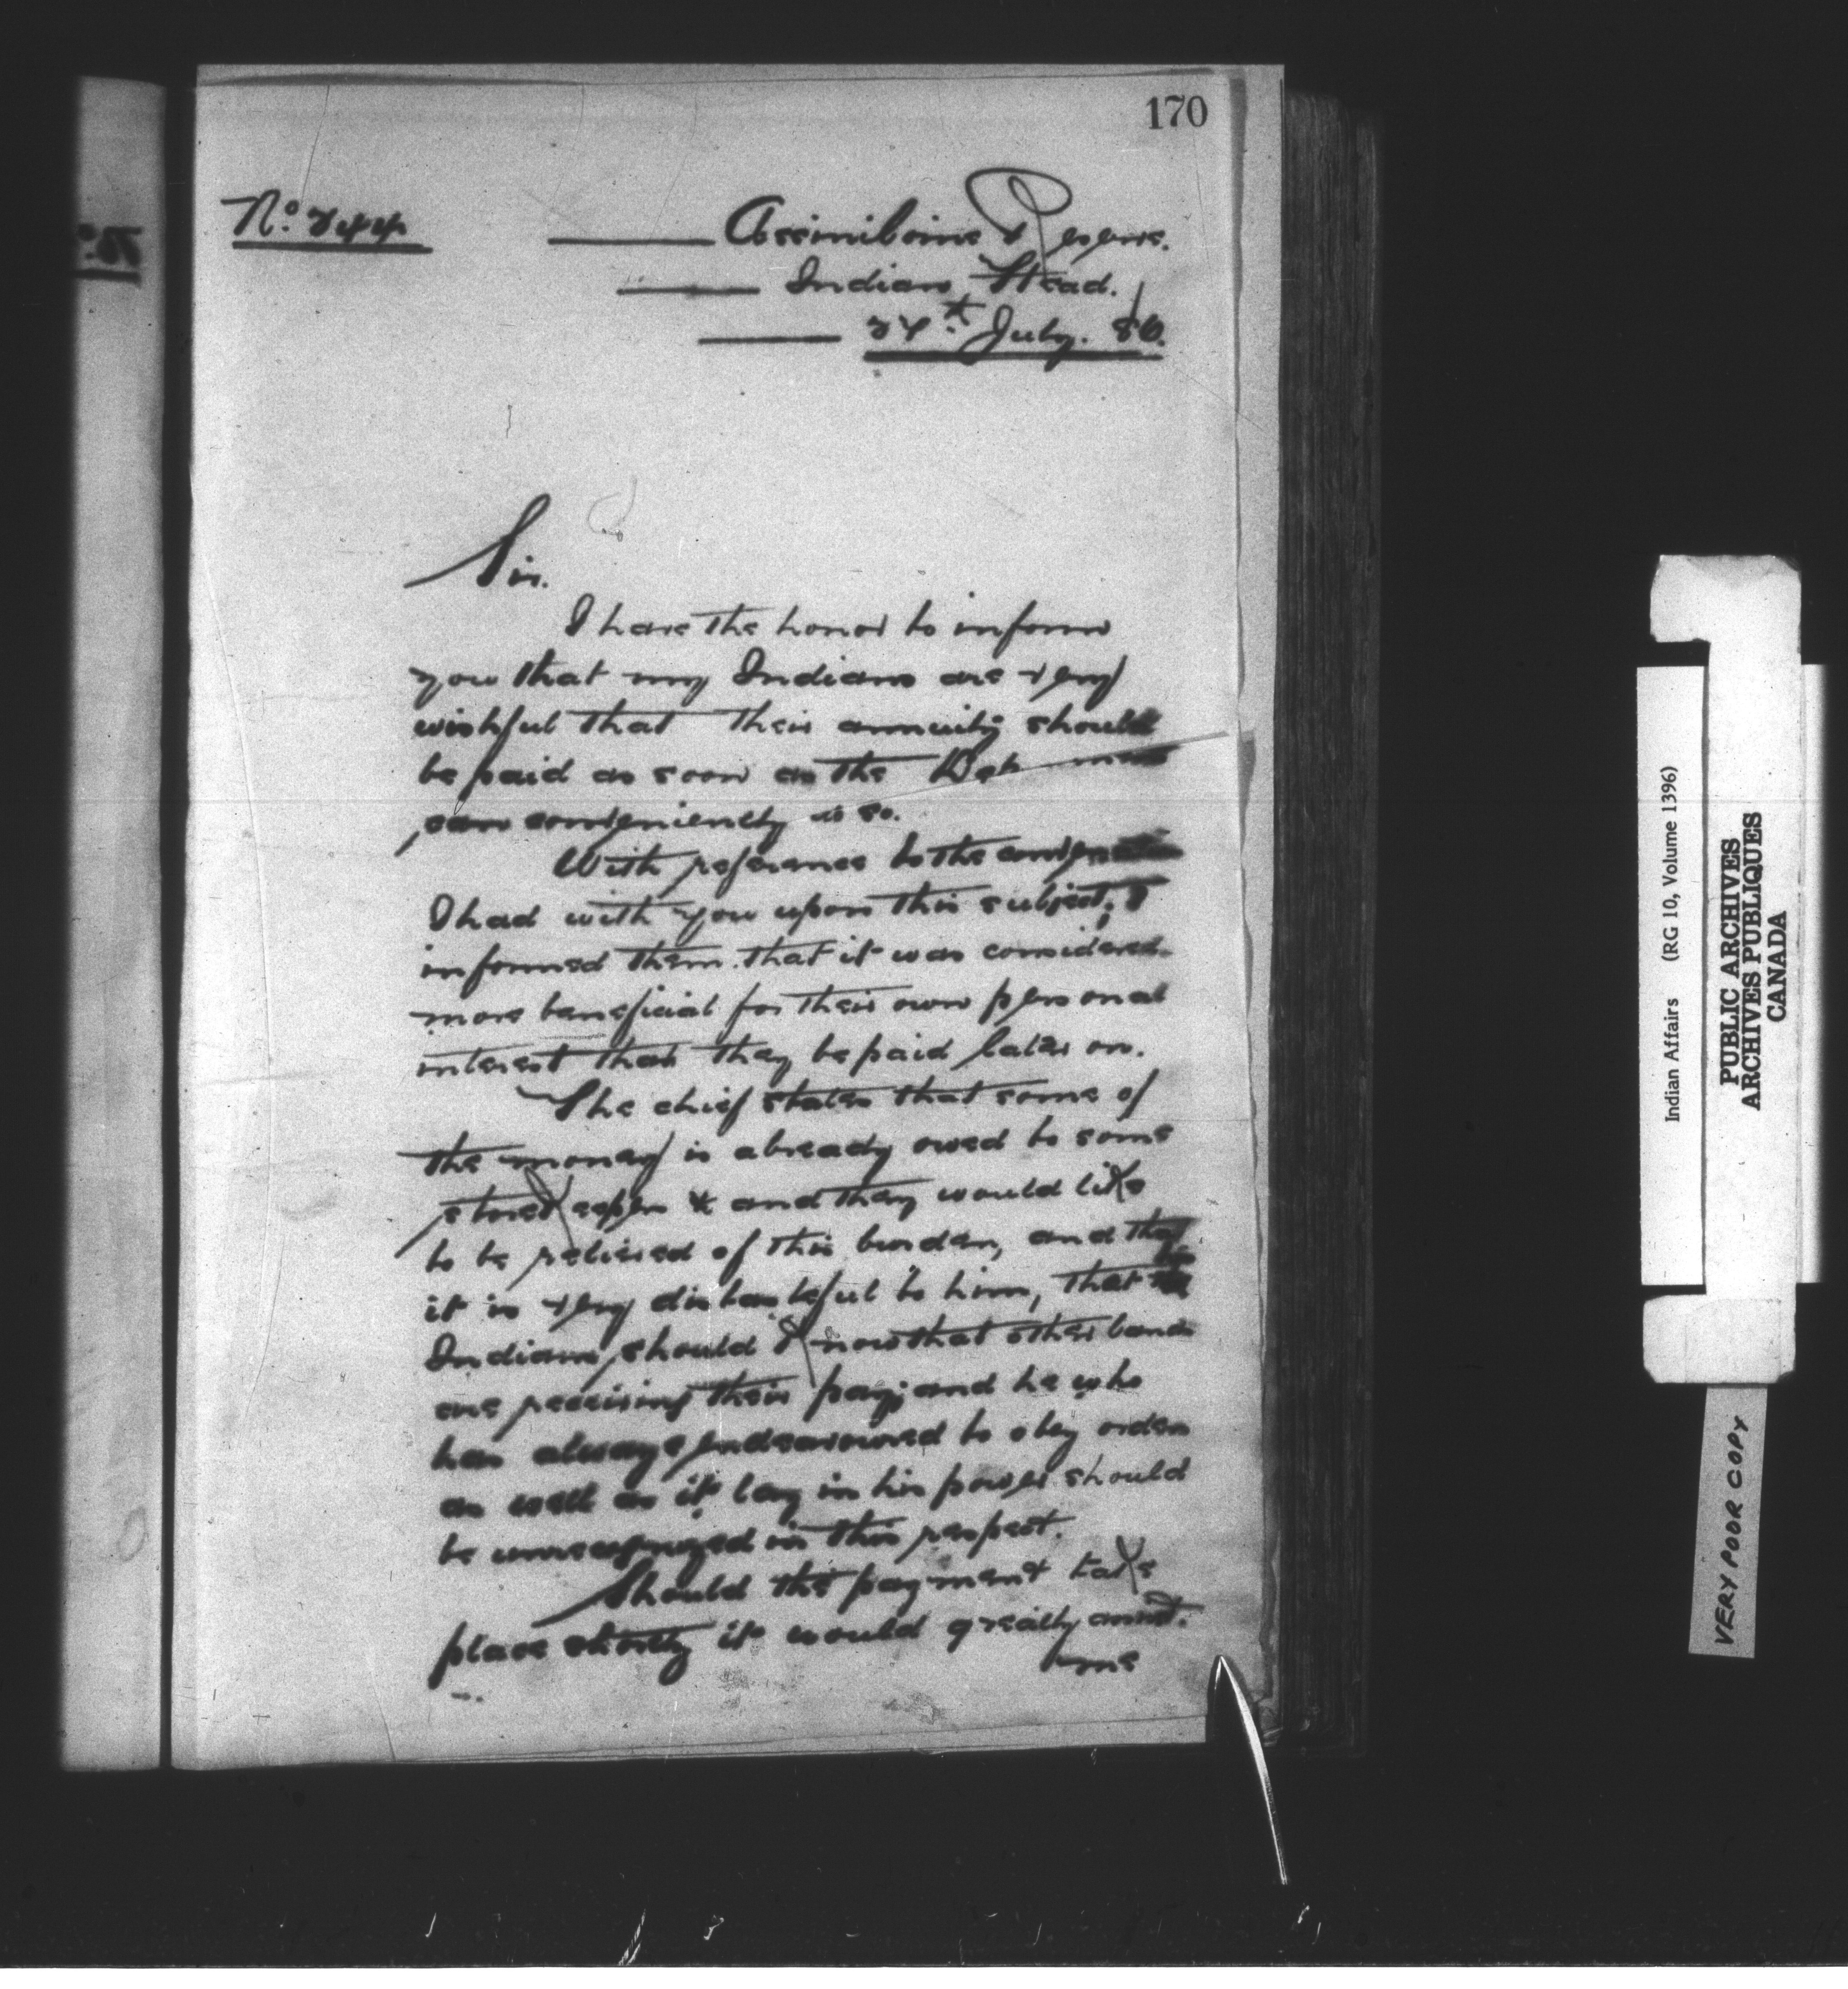 170
No. 244
Assiniboine Reserve.
Indian Head.
24th July. 86.
Sir.
I have the honor to inform
you that my Indians are very
wishful that their annuity should
be paid as soon as the
can conveniently do so.
With reference to the
I had with you upon this subject, I
informed them that it was considered
more beneficial for their own personal
interest that they be paid later on.
The chief states that some of
the money is already owed to some
storekeepers & and they would like
to be relieved of this burden, and that
it is very distasteful to him, that his
Indians, should know that other bands
are receiving their pay; and he who
has always endeavoured to obey orders
as well as it lay in his power should
be unrecognized in this respect.
Should the payment take
place shortly it would greatly assist.
me
Indian Affairs (RG 10, Volume 1396)
PUBLIC ARCHIVES
ARCHIVES PUBLIQUES
CANADA
VERY POOR COPY